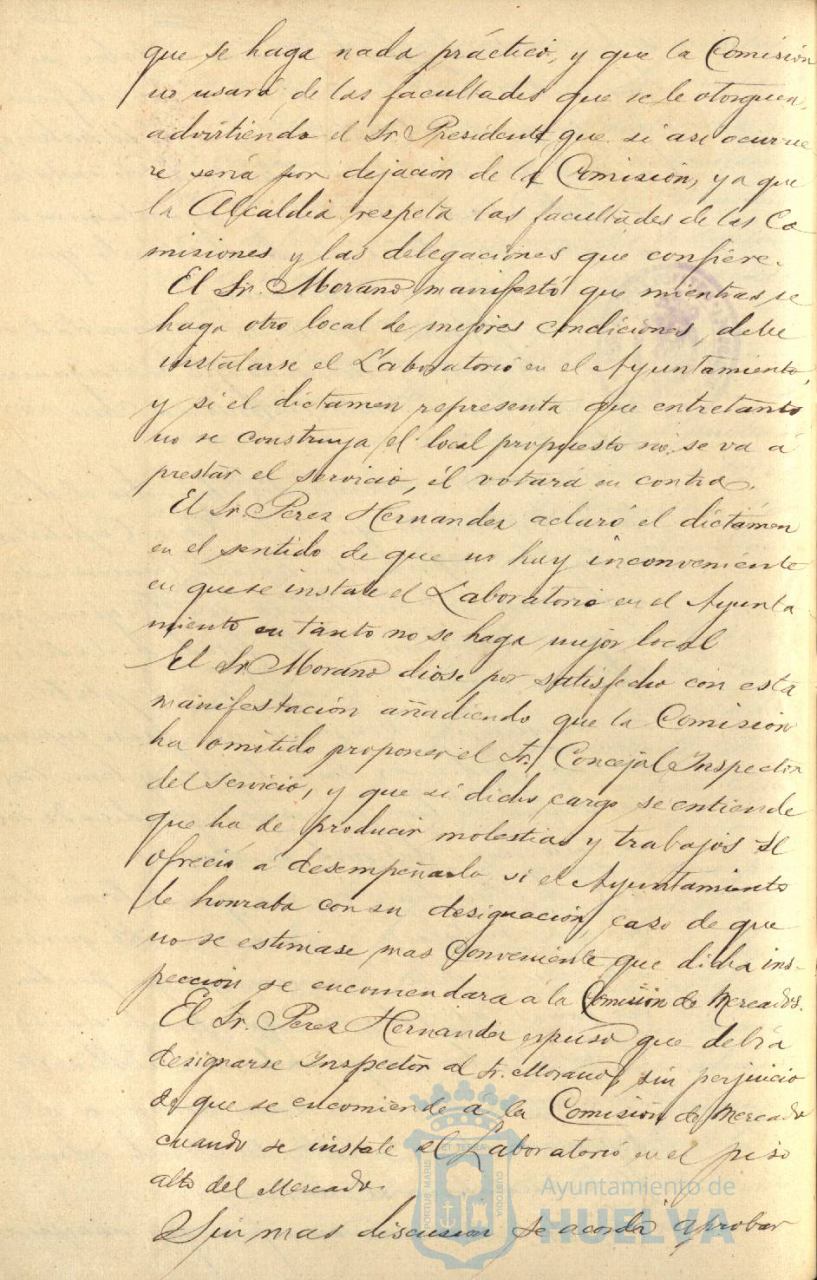 que se haga nada práctico, y que la Comisión
no usará de las facultades que se le otorguen,
advirtiendo el Sr. Presidente que si asi ocurrie
re sería por dejación de la Comisión, ya que
la Alcaldia respeta las facultades de las Co
misiones y las delegaciones que confiere.
El Sr. Morano manifestó que mientras se
haga otro local de mejores condiciones, debe
instalarse el Laboratorio en el Ayuntamiento,
y si el dictamen representa que entretanto
no se construya el local propuesto no se va á
prestar el servicio, él votará en contra.
El Sr. Perez Hernandez aclaró el dictámen
en el sentido de que no hay inconveniente
en que se instale el Laboratorio en el Ayunta
miento en tanto no se haga mejor local
El Sr. Morano diose por satisfecho con esta
manifestación añadiendo que la Comisión
ha omitido proponer el Sr. Concejal Inspector
del servicio, y que si dicho cargo se entiende
que ha de producir molestias y trabajos se
ofreció á desempeñarlo si el Ayuntamiento
le honraba con su designación, caso de que
no se estimase mas conveniente que dicha ins-
pección se encomendara á la Comisión de Mercados.
El Sr. Perez Hernandez expuso que debía
designarse Inspector al Sr. Morano, sin perjuicio
de que se encomiende a la Comisión de Mercado
cuando se instale el Laboratorio en el piso
alto del Mercado.
Sin mas discusión se acordó aprobar
PORTUS MARIS ET TERRAE CUSTODIA
Ayuntamiento de
HUELVA